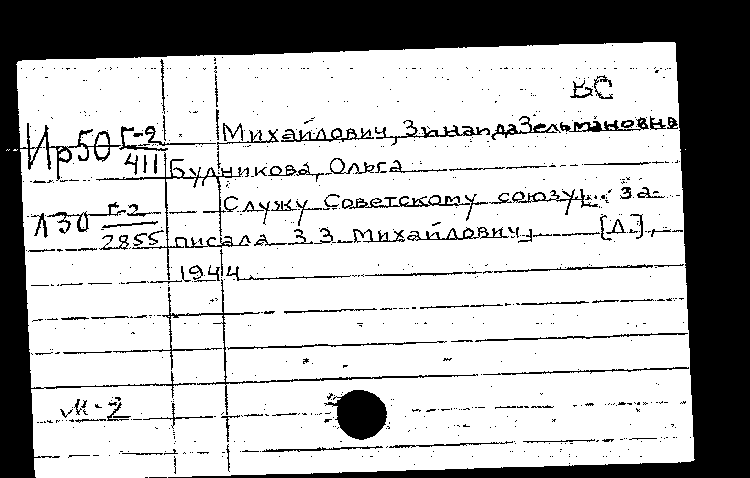 ВС
Ир50 Г-2/411
Михайлович, Зинаида Зельмановна
Будникова, Ольга
Л30 Г-2/2855
Служу Советскому союзу... За-
писала З.З. Михайлович, [Л.],
1944.
М-2